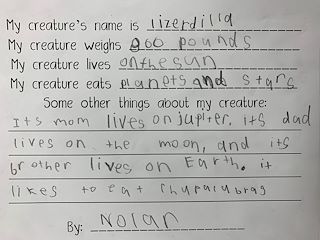 My creature's name is lizerdilla
My creature weighs 900 pounds
My creature lives onthesun
My creature eats planets and stars
Some other things about my creature:
Its mom lives on jupiter. its dad
lives on the moon, and its
brother lives on Earth. it
likes to eat chupacubras
By: Nolan